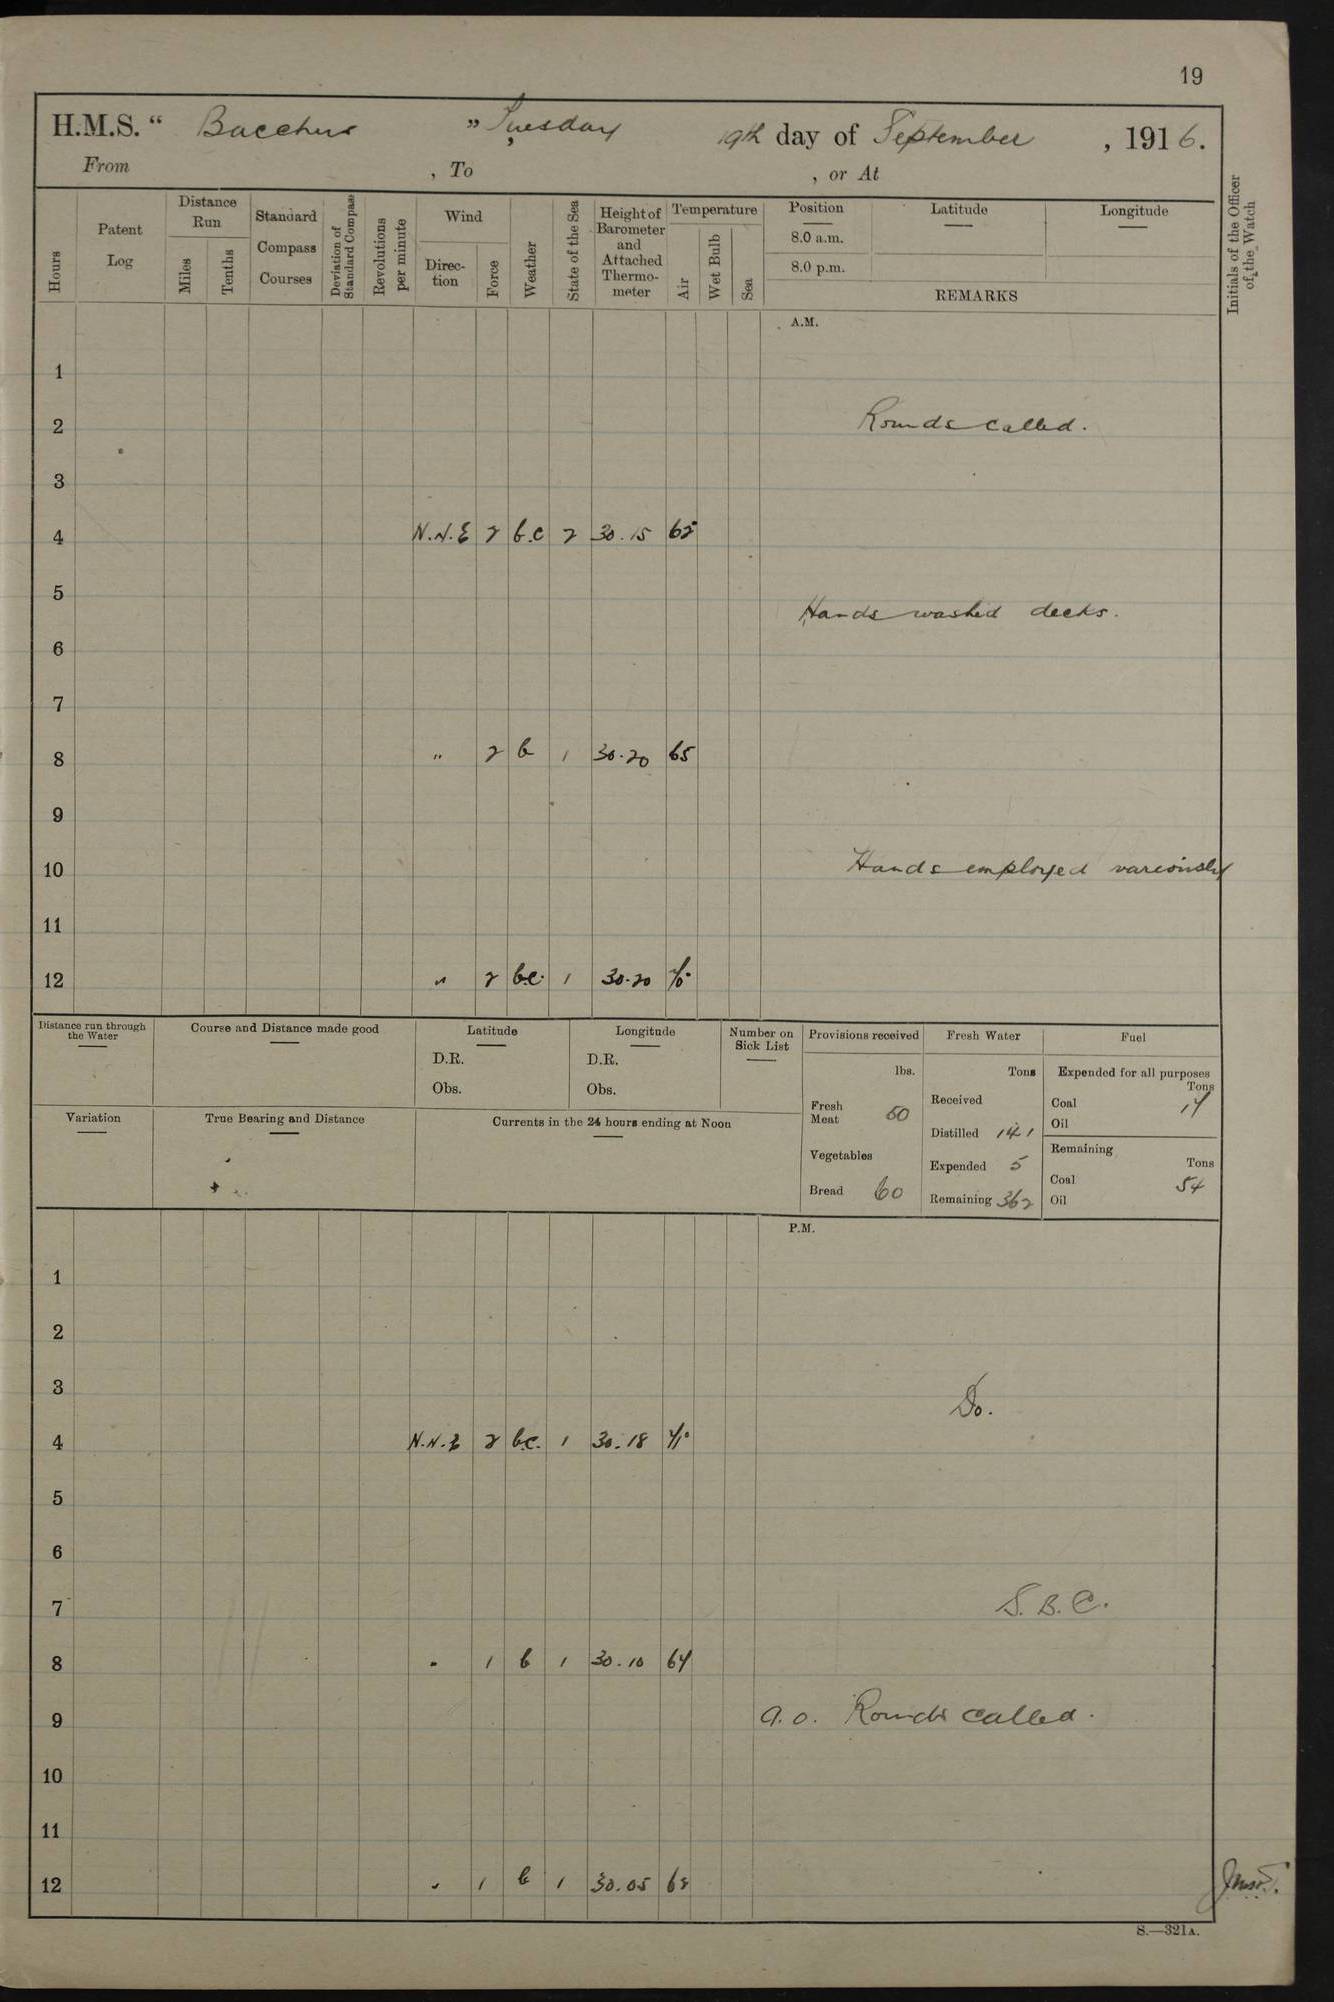 19
H.M.S. “ Bacchus ” Tuesday, 19th day of September, 1916.
From , To , or At
Hours
Patent Log
Distance Run
Miles
Tenths
Standard Compass Courses
Deviation of Standard Compass
Revolutions per minute
Wind
Direc-tion
Force
Weather
State of the Sea
Height of Barometer and Attached Thermo-meter
Temperature
Air
Wet Bulb
Sea
Position
8.0 a.m.
8.0 p.m.
Latitude
Longitude
REMARKS
Initials of the Officer of the Watch
A.M.
1
2 Rounds called.
3
4 N.N.E 2 b.c 2 30.15
5 Hands washed decks.
6
7
8 " 2 b 1 30.20 65
9
10 Hands employed variously
11
12 " 2 b.c. 1 30.20
Distance run through the Water
Course and Distance made good
Latitude
D.R.
Obs.
Longitude
D.R.
Obs.
Number on Sick List
Provisions received
lbs.
Fresh Meat 60
Vegetables
Bread 60
Fresh Water
Tons
Received
Distilled
Expended 5
Remaining 362
Fuel
Expended for all purposes
Tons
Coal
Oil
Remaining
Tons
Coal 54
Oil
Variation
True Bearing and Distance
Currents in the 24 hours ending at Noon
P.M.
1
2
3 Do.
4 N.N.E 2 b.c. 1 30.18
5
6
7 S.B.C.
8 " 1 b 1 30.10 64
9 9.0. Rounds called.
10
11
12 " 1 b 1 30.05
S.—321A.